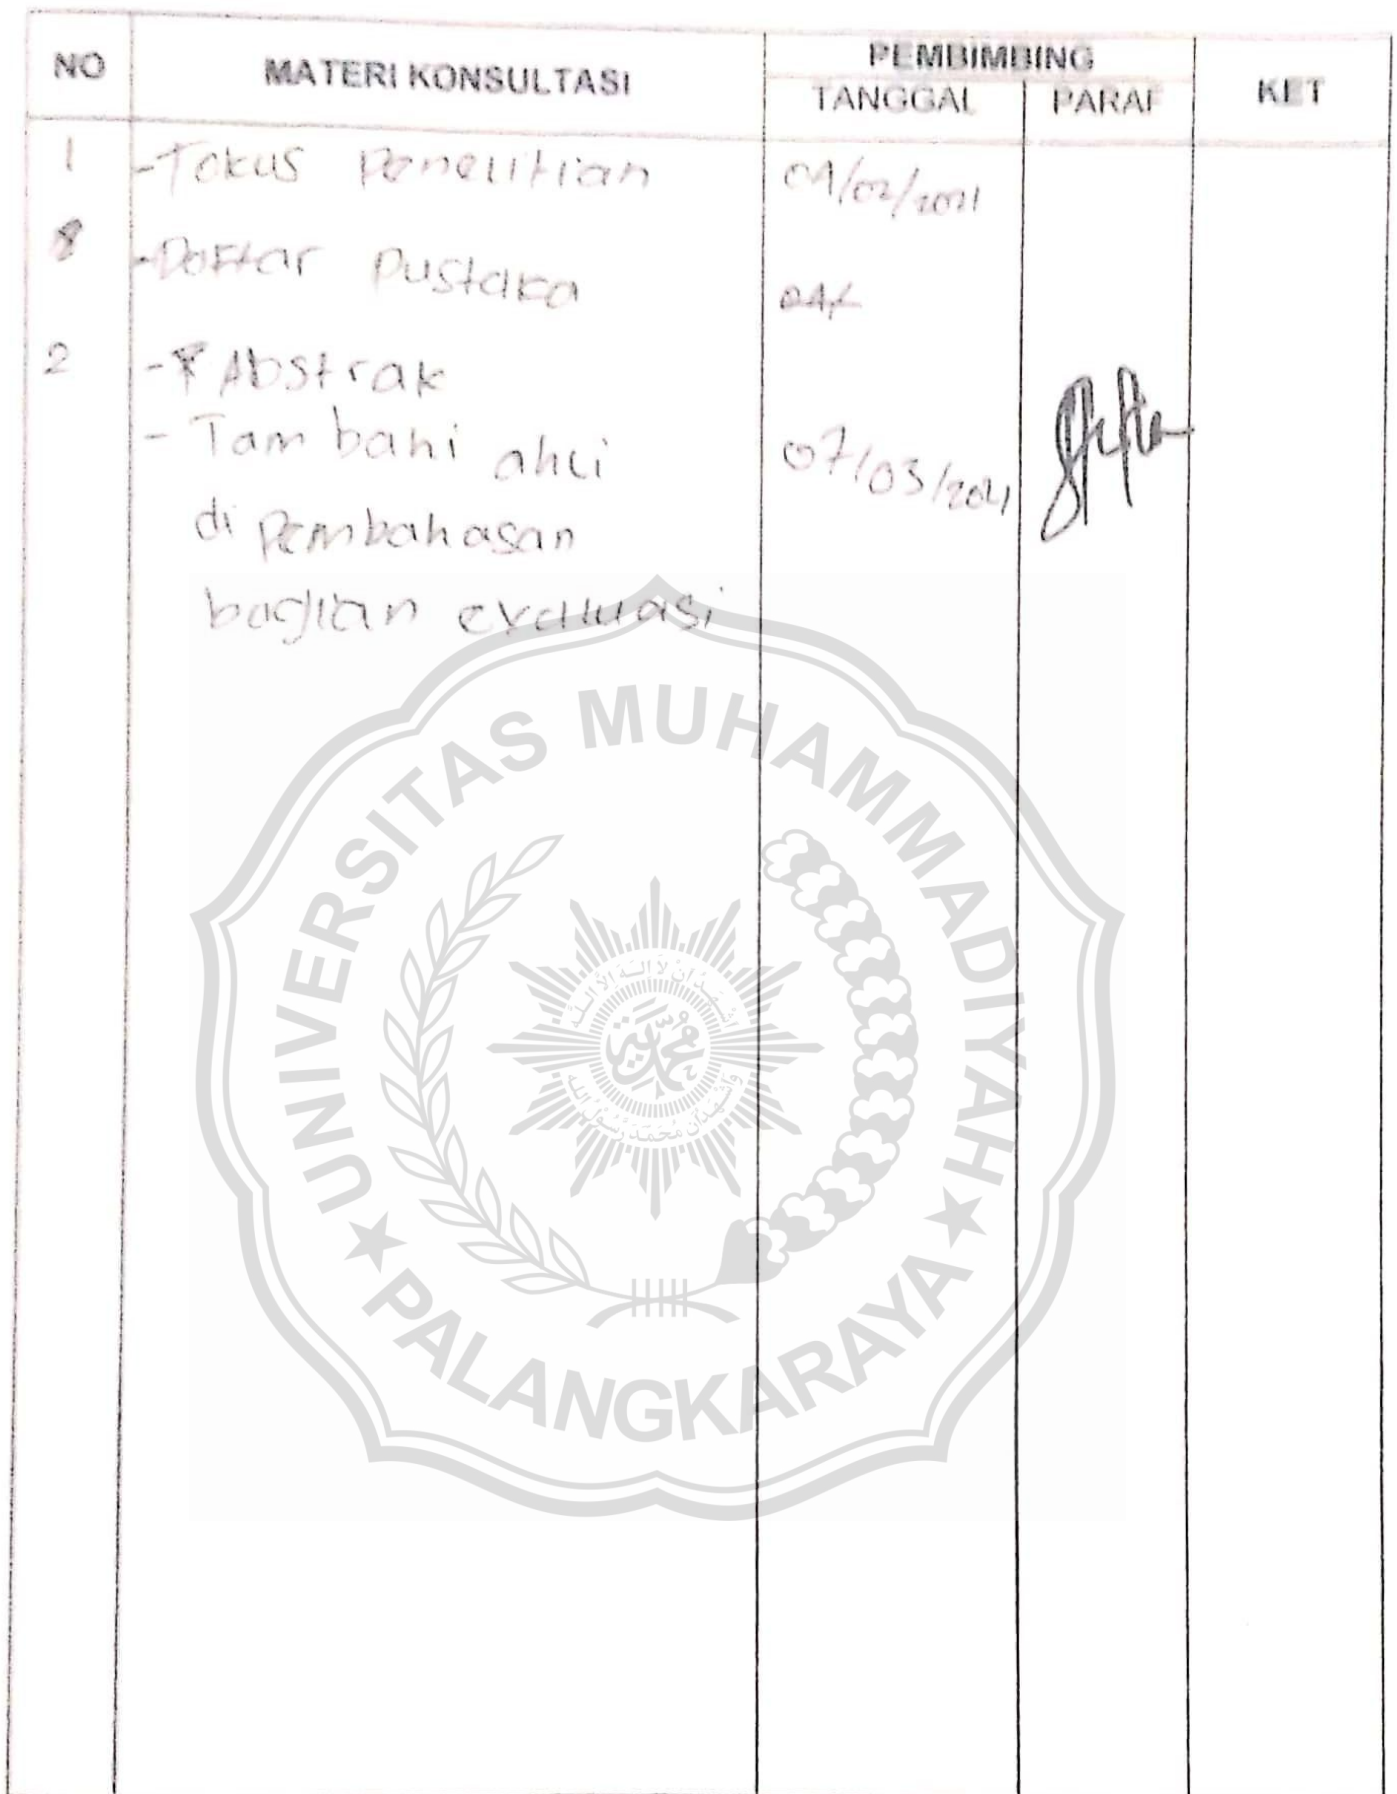 NO MATERI KONSULTASI PEMBIMBING KET
TANGGAL PARAF
1 -Fokus Penelitian 01/02/2021
-Daftar Pustaka
2 -Abstrak
- Tambahi ahli 07/03/2021
di Pembahasan
bagian evaluasi
UNIVERSITAS MUHAMMADIYAH
PALANGKARAYA